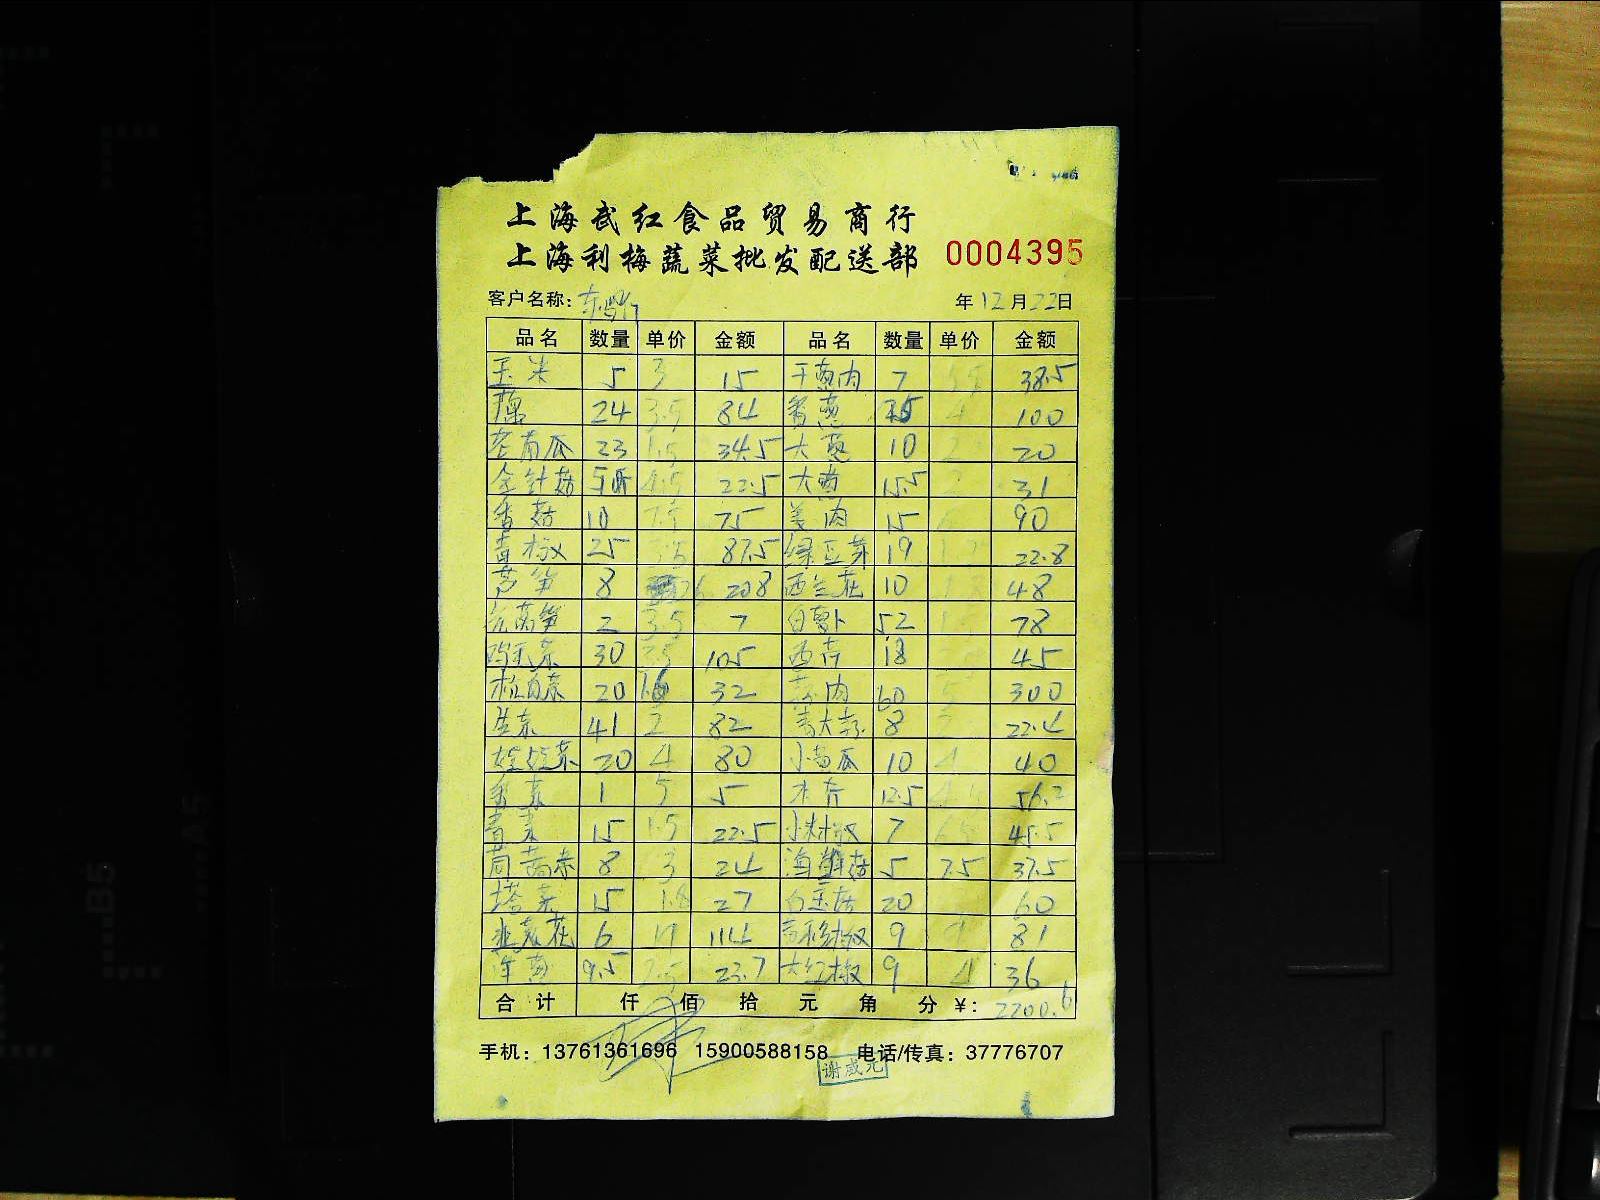 上海武红食品贸易商行
上海利梅蔬菜批发配送部 0004395
客户名称: 年12月22日
品名 数量 单价 金额 品名 数量 单价 金额
玉米 5 3 15 干葱肉 7 5.5 38.5
24 3.5 84 香葱 25 4 100
老南瓜 23 1.5 34.5 大葱 10 2 20
金针菇 4.5 22.5 大 15.5 2 31
香菇 10 7.5 75 姜肉 15 6 90
青椒 25 3.5 87.5 绿豆芽 19 1.2 22.8
芦笋 8 26 208 西兰花 10 4.8 48
莴笋 2 3.5 7 白萝卜 52 1.5 78
鸡毛菜 30 3.5 105 西芹 18 45
杭白菜 20 1.6 32 蒜肉 60 5 300
生菜 41 2 82 青大蒜 8 22.4
娃娃菜 20 4 80 小黄瓜 10 4 40
香菜 1 5 5 木 12.5 4.5 56.2
青菜 15 1.5 22.5 小米椒 7 6.5 45.5
茼蒿菜 8 3 24 海鲜菇 5 7.5 37.5
塔菜 15 1.8 27 白玉菇 20 60
韭菜花 6 19 114 椒 9 9 81
洋葱 9.5 2.5 23.7 大红椒 9 4 36
合计 仟 佰 拾 元 角 分 ¥: 2200.6
手机: 13761361696 15900588158 电话/传真: 37776707
谢咸元